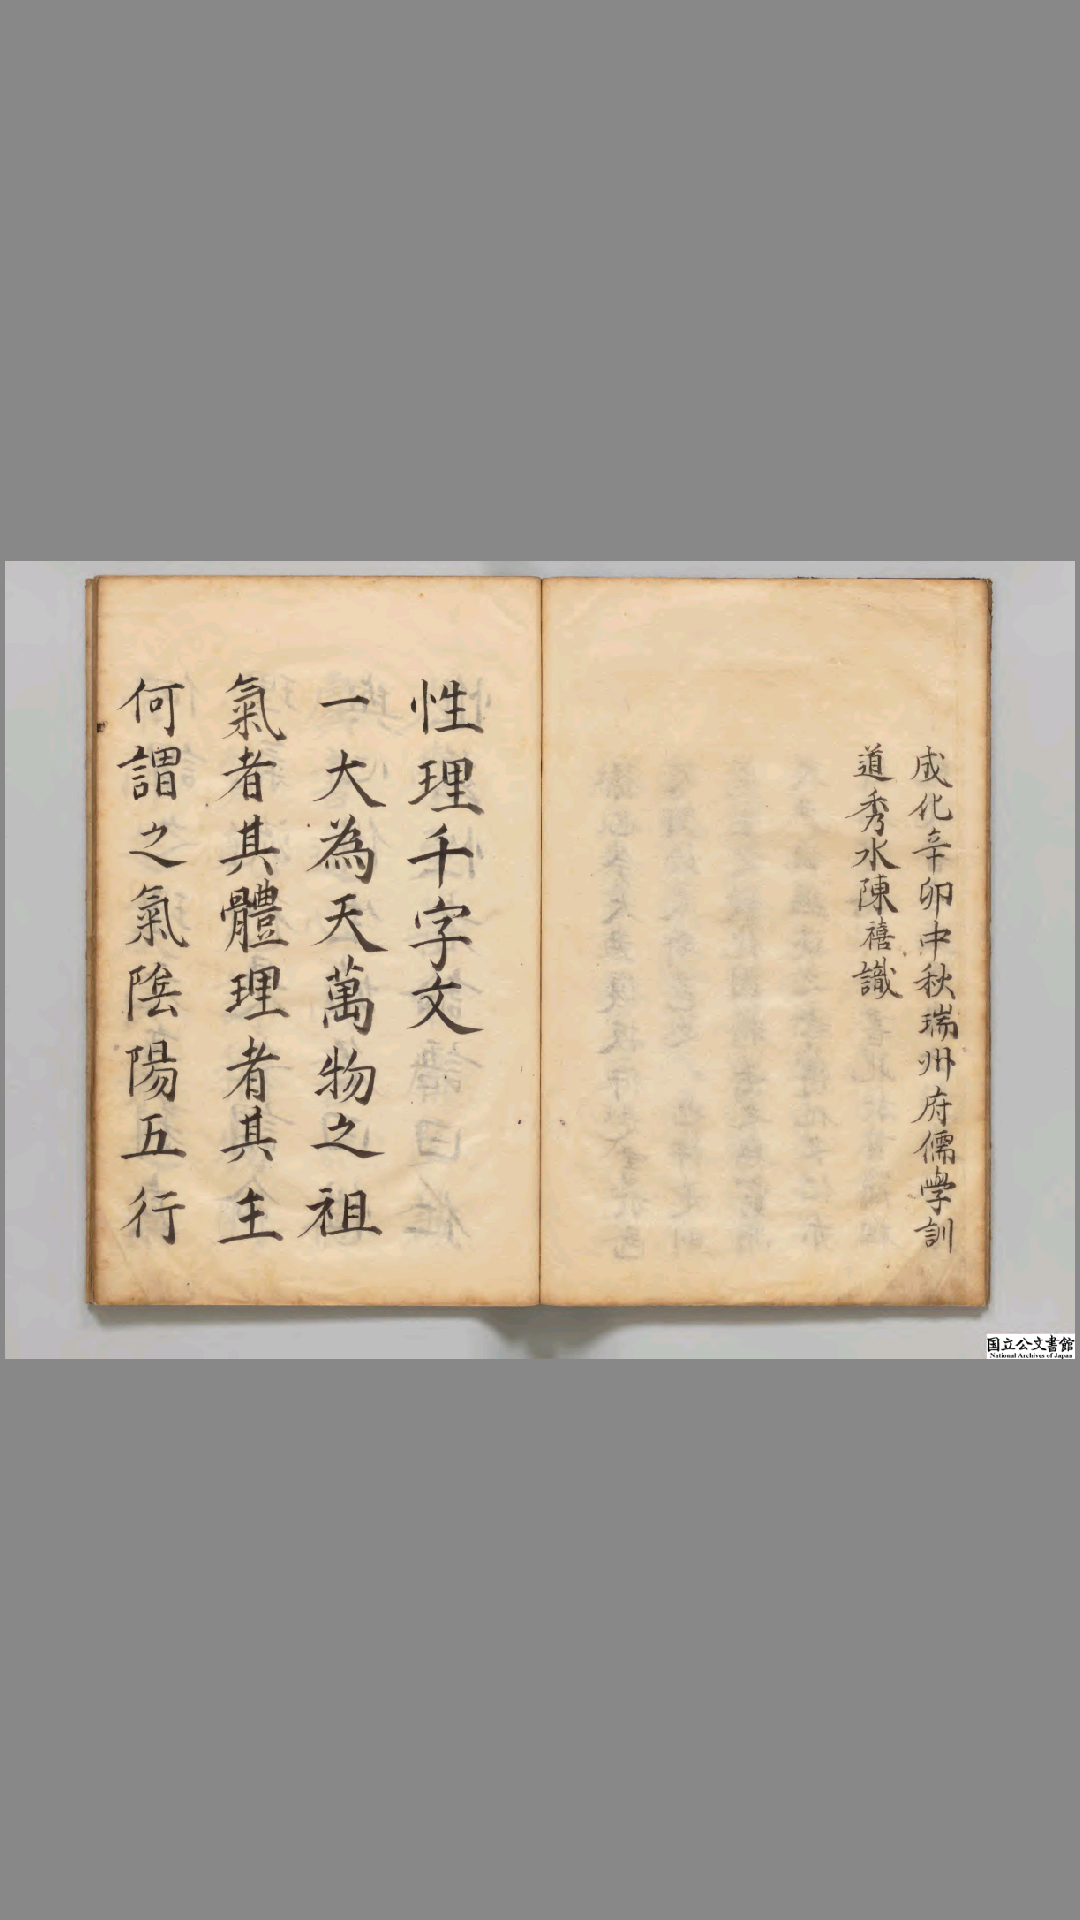 成化辛卯中秋瑞州府儒學訓
道秀水陳禧識
性理千字文
一大為天萬物之祖
氣者其體理者其主
何謂之氣陰陽五行
国立公文書館
National Archives of Japan